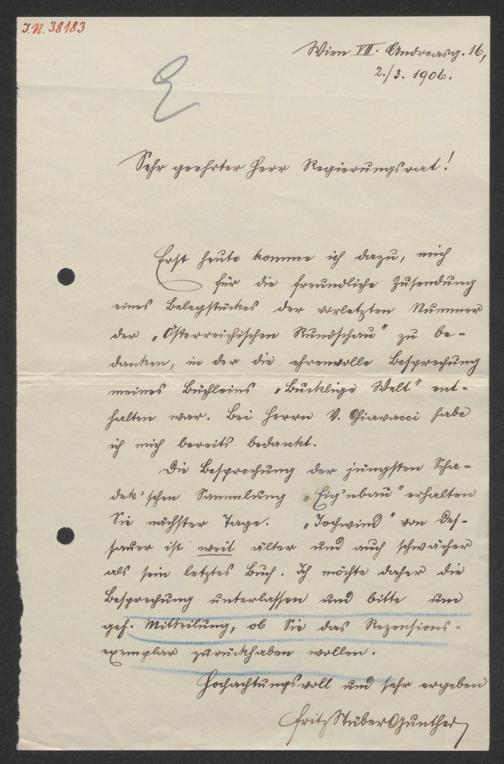 I.N. 38183
Wien VII. Andreasg. 16,
2./3. 1906.
Sehr geehrter Herr Regierungsrat!
Erst heute komme ich dazu, mich
für die freundliche Zusendung
eines Belegstückes der vorletzten Nummer
der „Österreichischen Rundschau" zu be-
danken, in der die ehrenvolle Besprechung
meines Büchleins „Bucklige Welt" ent-
halten war. Bei Herrn V. Chiavacci habe
ich mich bereits bedankt.
Die Besprechung der jüngsten Scha-
dek'schen Sammlung „Eich'nbäu" erhalten
Sie nächster Tage. „Jochwind" von Des-
sauer ist weit älter und auch schwächer
als sein letztes Buch. Ich möchte daher die
Besprechung unterlassen und bitte um
gef. Mitteilung, ob Sie das Rezensions-
exemplar zurückhaben wollen.
Hochachtungsvoll und sehr ergeben
Fritz Stüber Gunther